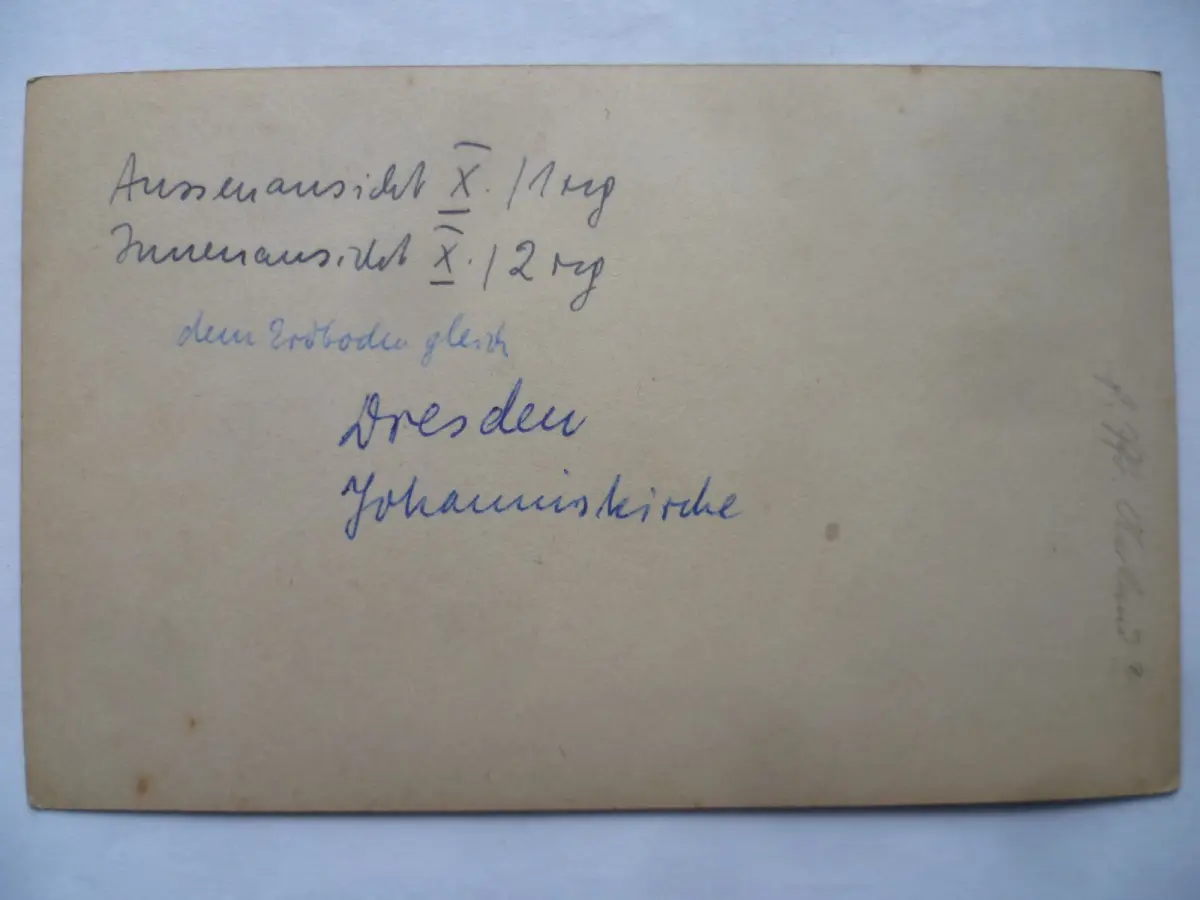 Aussenansicht X./1 rg
Innenansicht X./2 rg
dem Erdboden gleich
Dresden
Johanniskirche